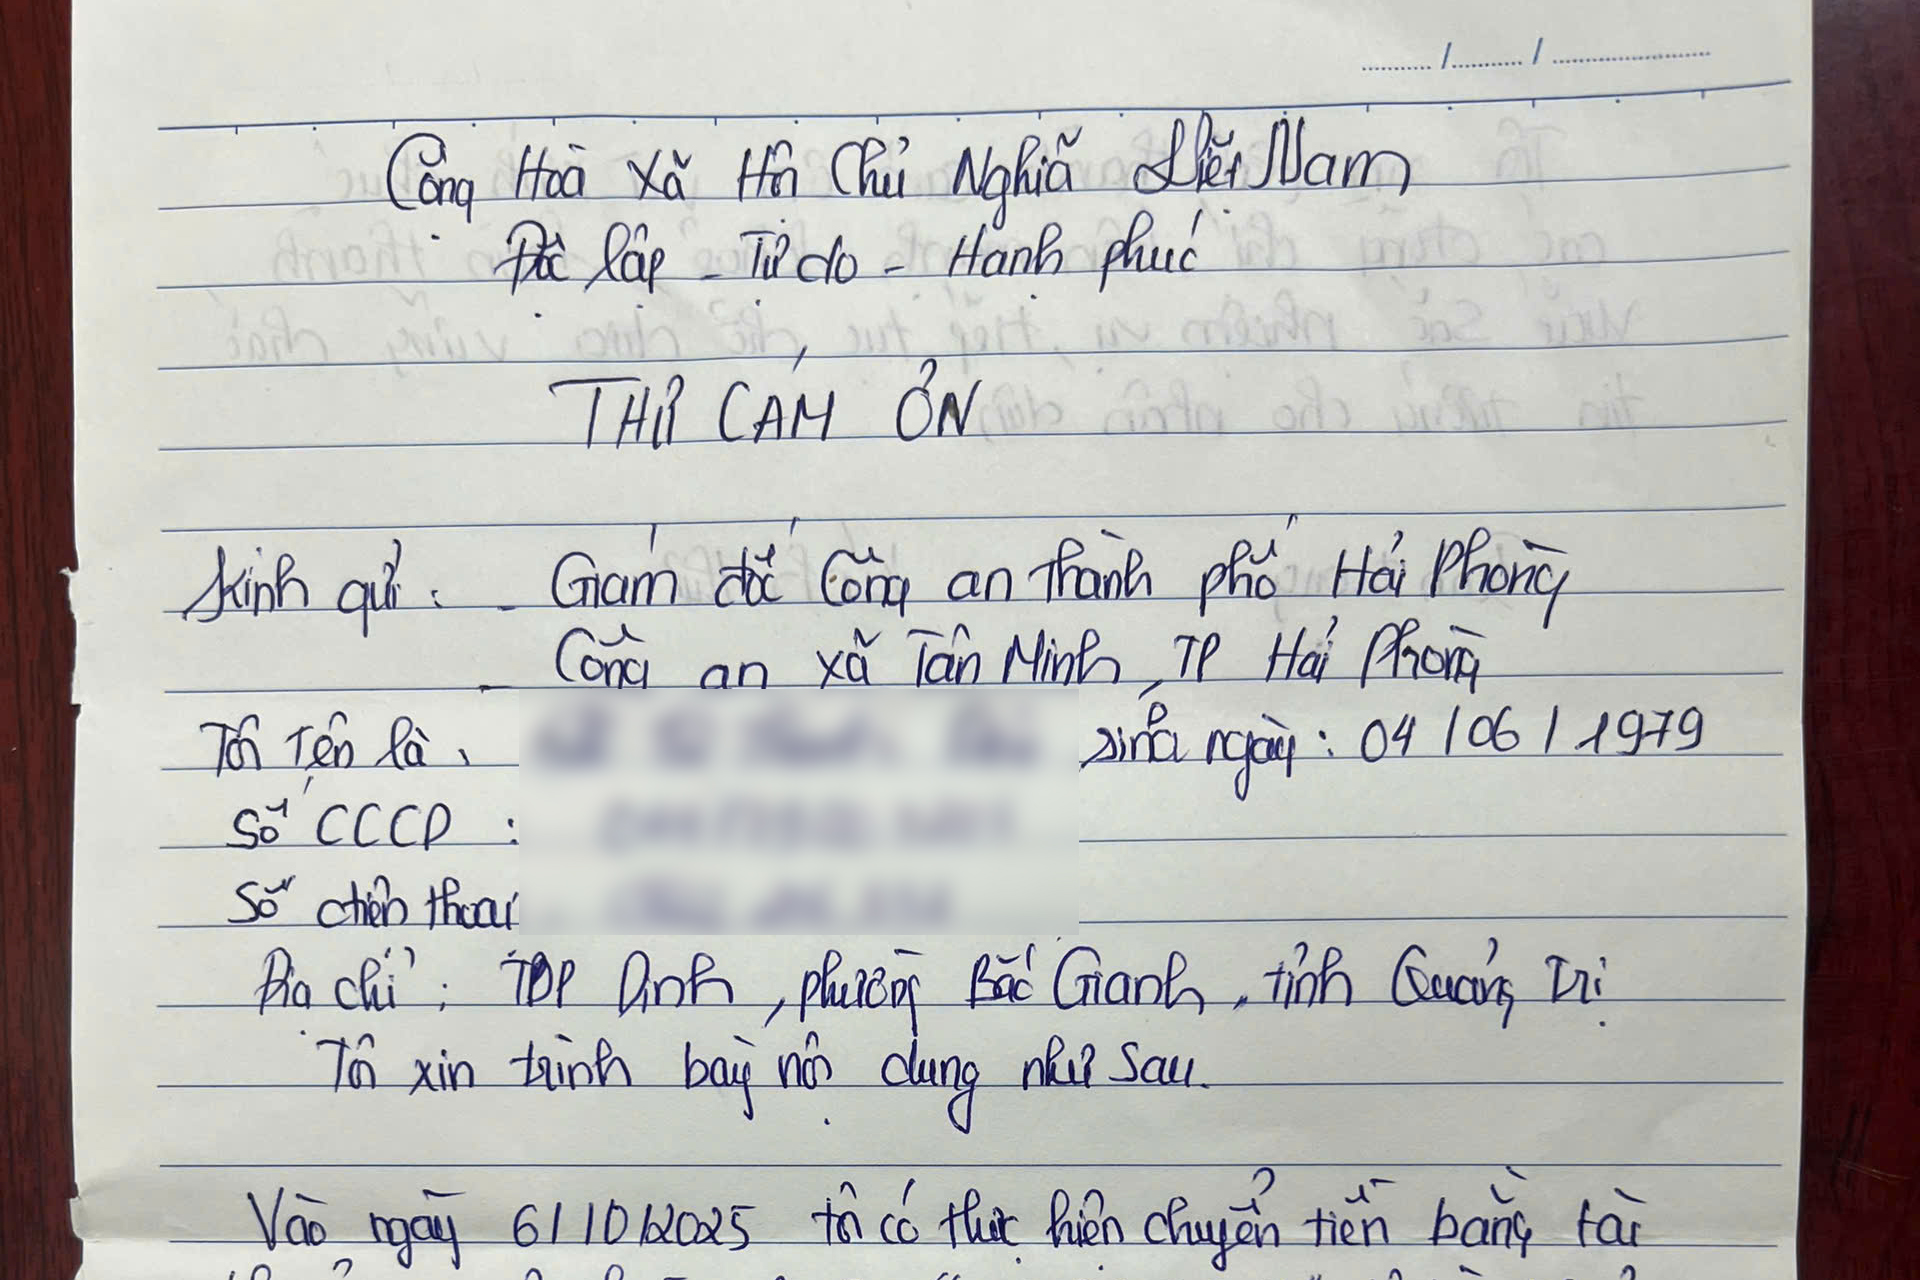 Cộng Hoà Xã Hội Chủ Nghĩa Việt Nam
Độc lập - Tự do - Hạnh phúc
THƯ CẢM ƠN
Kính gửi: - Giám đốc Công an thành phố Hải Phòng
- Công an xã Tân Minh, TP Hải Phòng
Tôi tên là: sinh ngày: 04/06/1979
Số CCCD :
Số điện thoại
Địa chỉ: TDP Định, phường Bắc Gianh, tỉnh Quảng Trị
Tôi xin trình bày nội dung như sau.
Vào ngày 6/10/2025 tôi có thực hiện chuyển tiền bằng tài